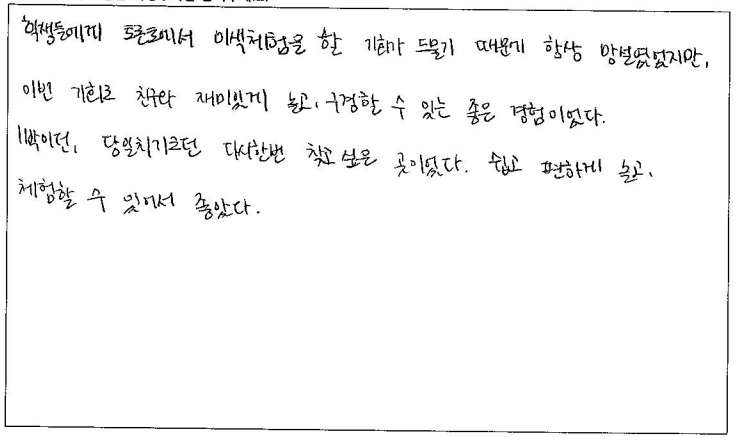 학생들에게 토론토에서 이색체험을 할 기회가 드물기 때문에 항상 망설였었지만,
이번 기회로 친구와 재미있게 놀고, 구경할 수 있는 좋은 경험이었다.
1박이던, 당일치기로던 다시한번 찾고 싶은 곳이었다. 쉽고 편하게 놀고,
체험할 수 있어서 좋았다.